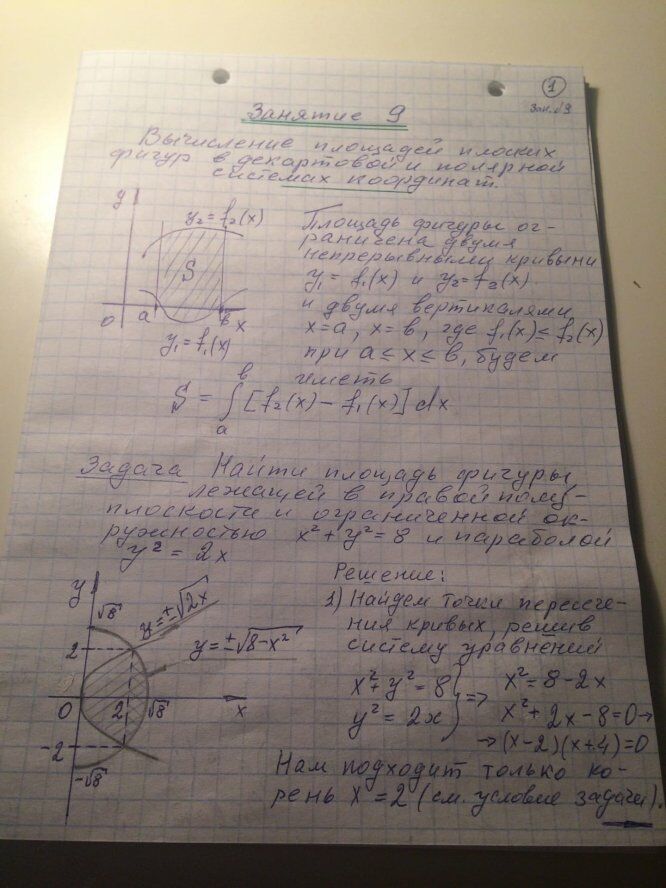 1
Зан. №9
Занятие 9
Вычисление площадей плоских
фигур в декартовой и полярной
системах координат.
y
y₂=f₂(x)
S
0
a
в
x
y₁=f₁(x)
Площадь фигуры ог-
раничена двумя
непрерывными кривыми
y₁=f₁(x) и y₂=f₂(x)
и двумя вертикалями
x=a, x=в, где f₁(x)≤f₂(x)
при a≤x≤в, будем
иметь
S = ∫ₐᵇ [f₂(x) − f₁(x)] dx
Задача Найти площадь фигуры,
лежащей в правой полу-
плоскости и ограниченной ок-
ружностью x²+y²=8 и параболой
y²=2x
y
√8
y=±√2x
2
y=±√8−x²
0
2
√8
x
−2
−√8
Решение:
1) Найдем точки пересече-
ния кривых, решив
систему уравнений
x²+y²=8
y²=2x
} =>
x²=8−2x
x²+2x−8=0→
→(x−2)(x+4)=0
Нам подходит только ко-
рень x=2 (см. условие задачи).